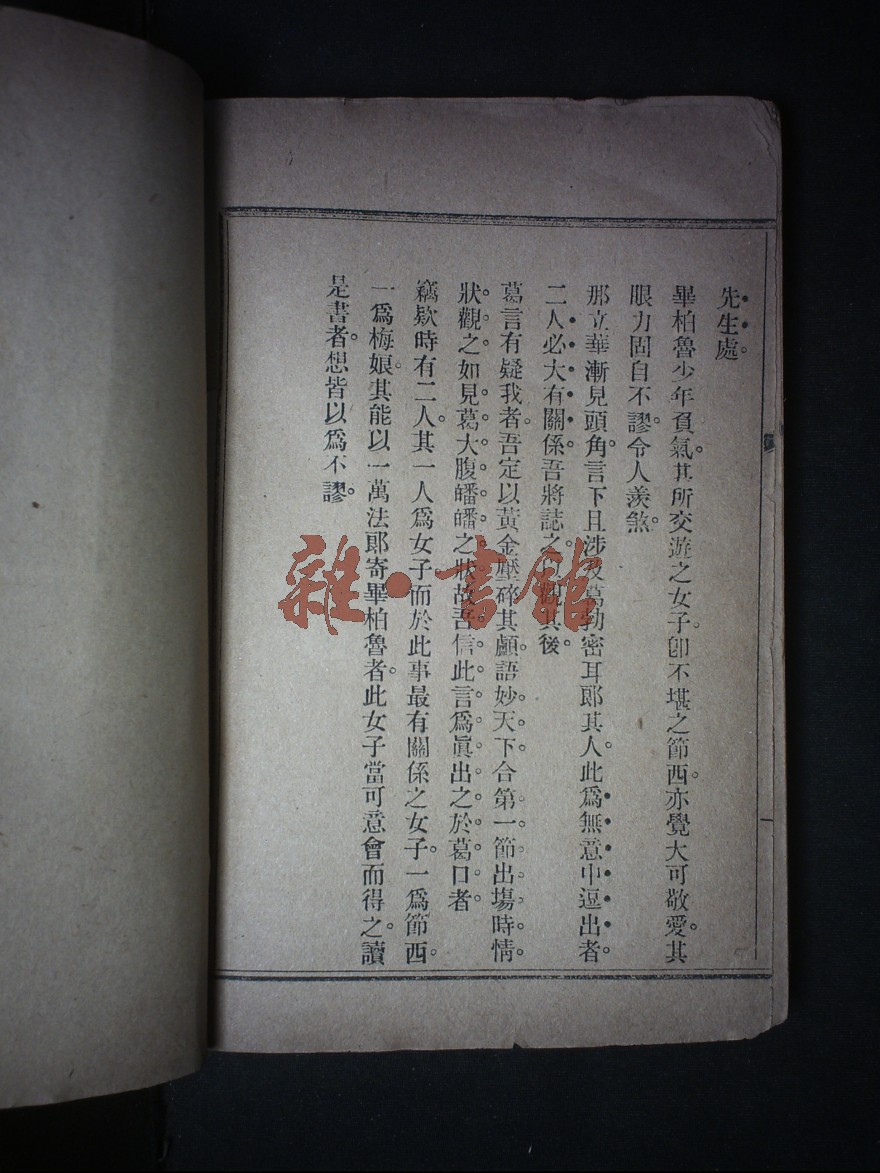 先生處。
畢柏魯少年負氣。其所交遊之女子。卽不堪之節西。亦覺大可敬愛。其
眼力固自不謬。令人羨煞。
那立華漸見頭角。言下且涉及葛勃密耳郎其人。此爲無意中逗出者
二人必大有關係。吾將誌之。以觀其後。
葛言有疑我者。吾定以黃金壓碎其顱。語妙天下。合第一節出塲時情
狀觀之。如見葛大腹皤皤之狀。故吾信此言爲眞出之於葛口者
竊欵時有二人。其一人爲女子。而於此事最有關係之女子。一爲節西。
一爲梅娘。其能以一萬法郎寄畢柏魯者。此女子當可意會而得之。讀
是書者。想皆以爲不謬。
雜·書館